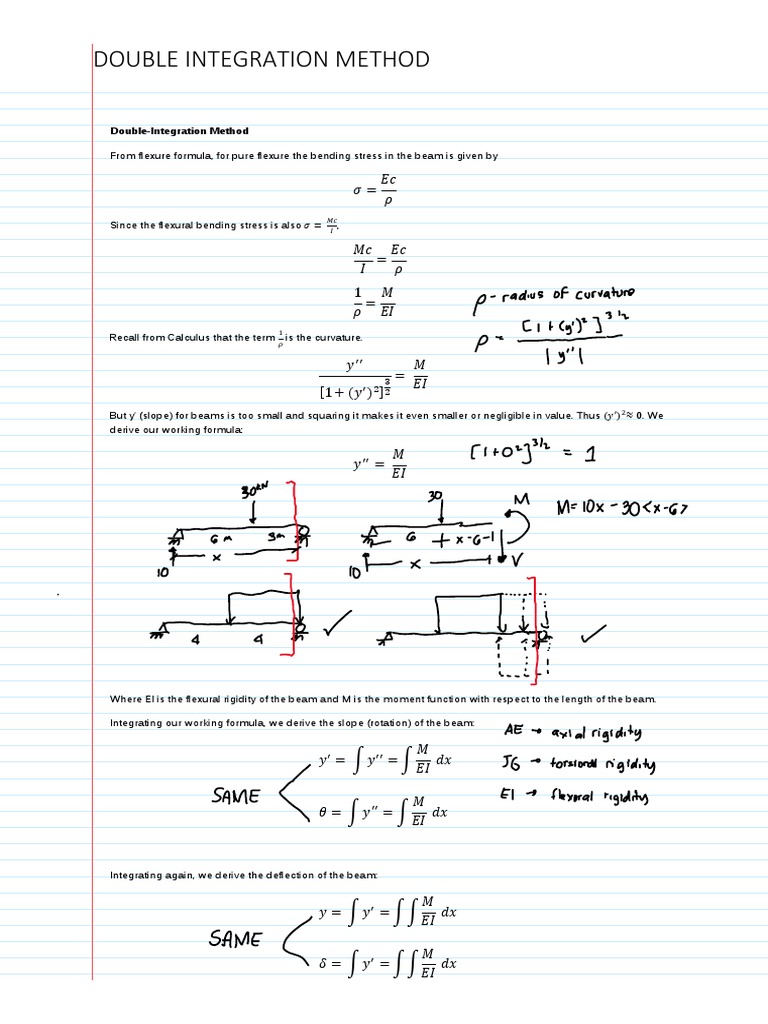 DOUBLE INTEGRATION METHOD
Double-Integration Method
From flexure formula, for pure flexure the bending stress in the beam is given by
σ = Ec/ρ
Since the flexural bending stress is also σ = Mc/I,
Mc/I = Ec/ρ
1/ρ = M/EI
ρ - radius of curvature
Recall from Calculus that the term 1/ρ is the curvature.
ρ = [1+(y')²]^3/2 / |y''|
y''/[1+ (y')²]^3/2 = M/EI
But y' (slope) for beams is too small and squaring it makes it even smaller or negligible in value. Thus (y')²≈ 0. We
derive our working formula:
y'' = M/EI
[1+0²]^3/2 = 1
30kN
6m 3m
x
10
30
M
6 x-6
x
V
10
M= 10x - 30<x-6>
4 4
Where EI is the flexural rigidity of the beam and M is the moment function with respect to the length of the beam.
Integrating our working formula, we derive the slope (rotation) of the beam:
AE → axial rigidity
JG → torsional rigidity
EI → flexural rigidity
y' = ∫ y'' = ∫ M/EI dx
SAME
θ = ∫ y'' = ∫ M/EI dx
Integrating again, we derive the deflection of the beam:
y = ∫ y' = ∫ ∫ M/EI dx
SAME
δ = ∫ y' = ∫ ∫ M/EI dx